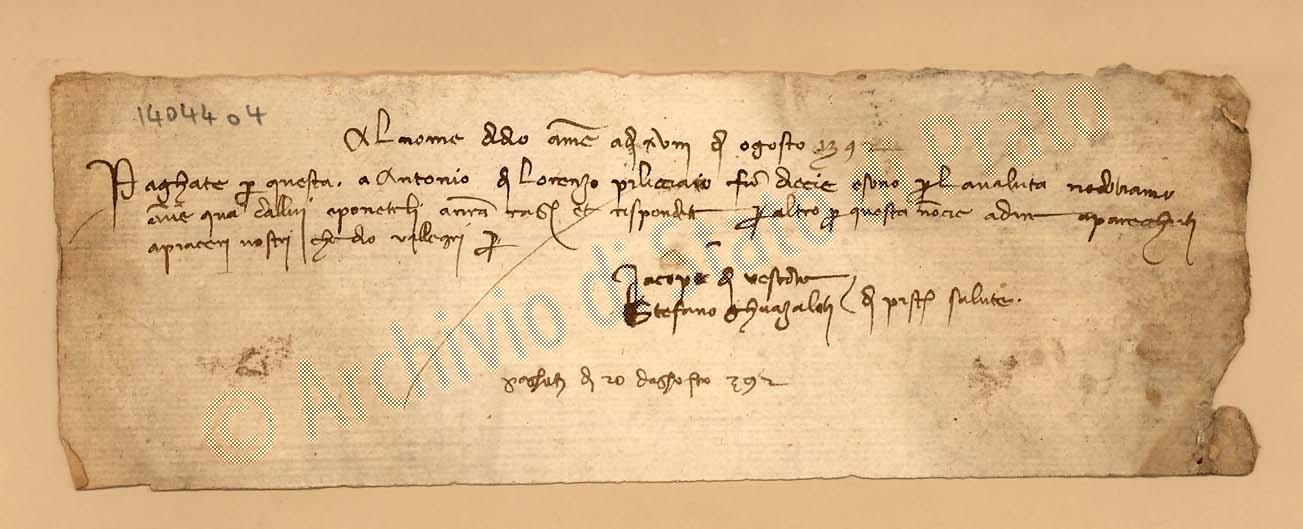 1404404
Al nome di dio ame adi xviii di ogosto 1392
Paghate p questa a Antonio di Lorenzo pilicciaio fior diecie e sono p la valuta
avere qua dallui e ponetelli a nra ragõ et rispondete p altro p questa nõ cie a dire aparechiati
a piaceri nostri che dio vallegri p
Iacopo di
Stefano Ghuazalotti di salute
paghati di 20 daghosto 392
© Archivio di Stato Prato